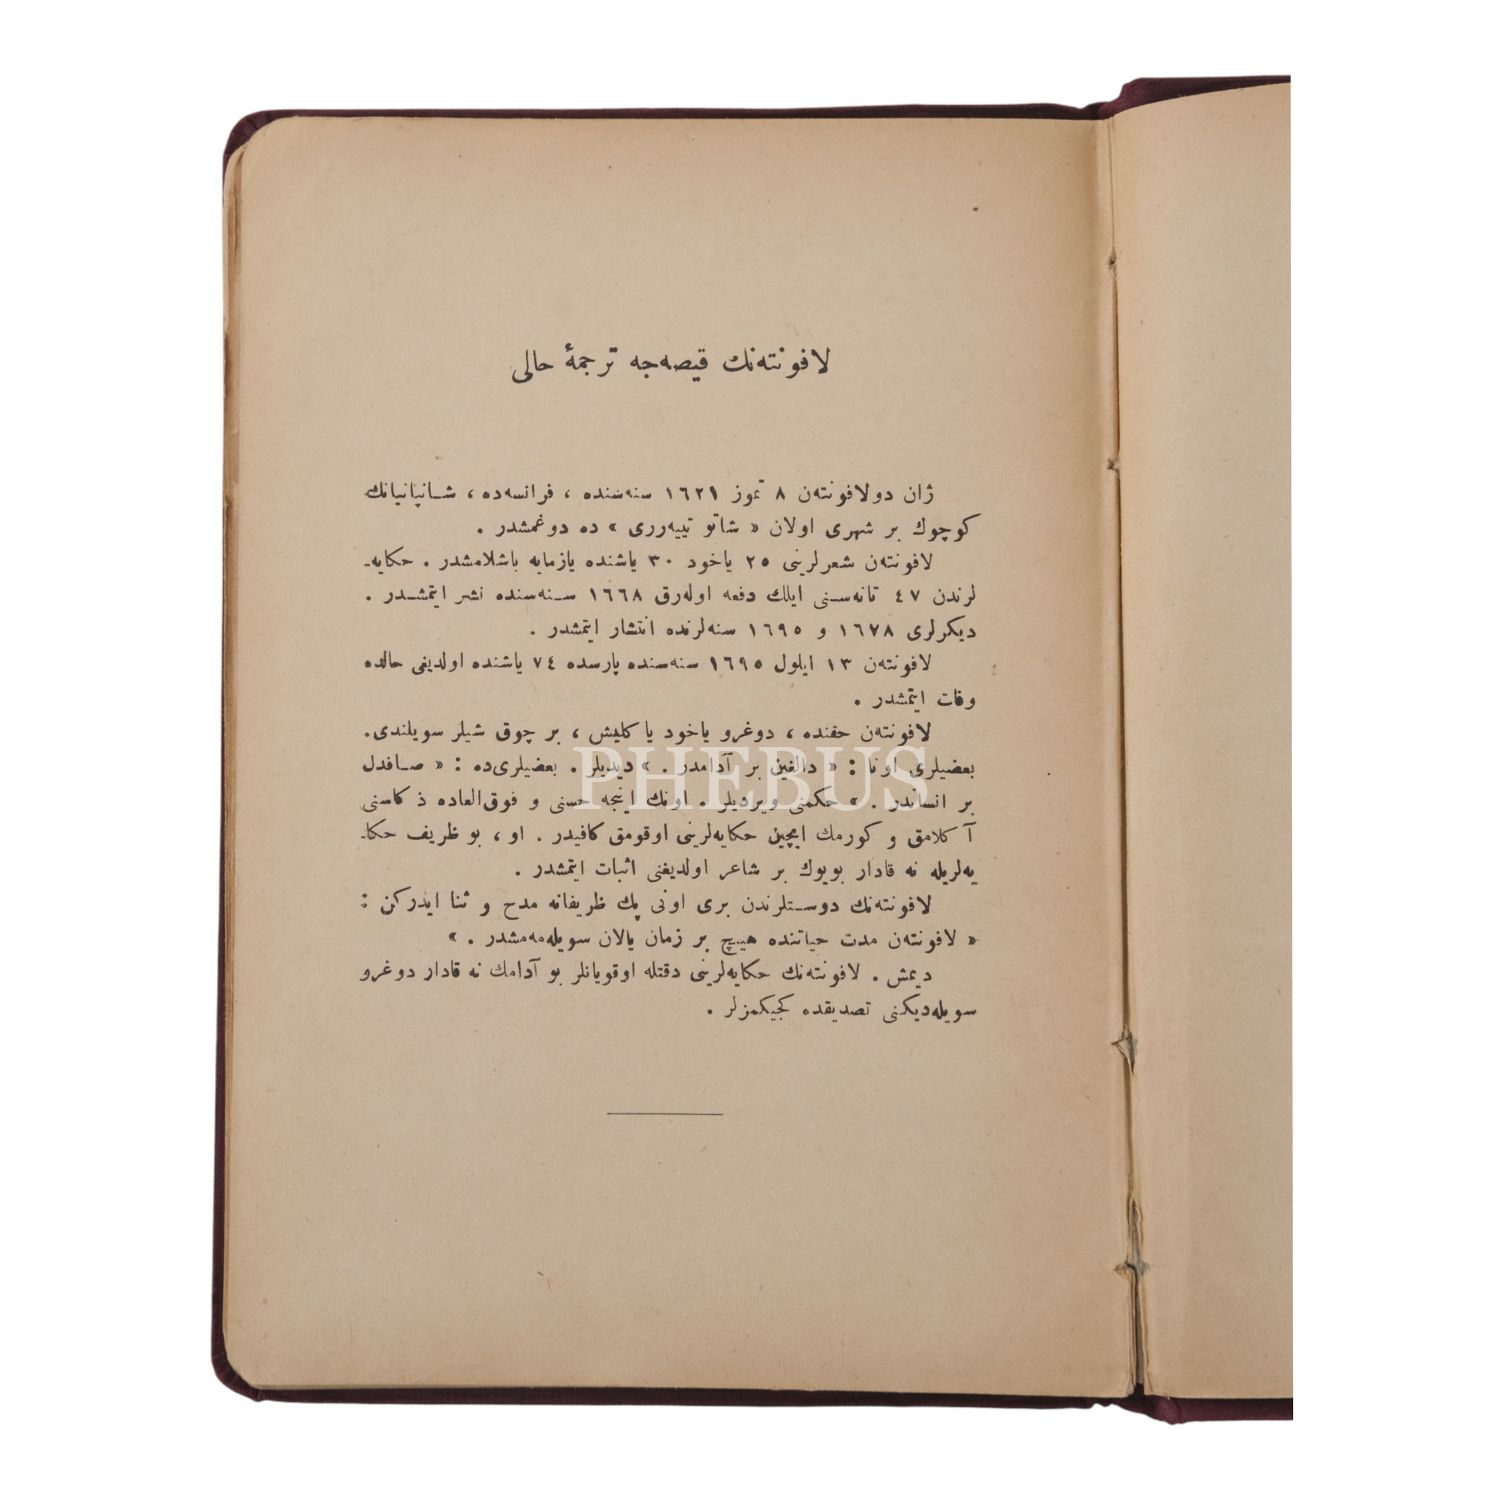 لافونته‌نك قيصه‌جه ترجمهٔ حالى
ژان دولافونته‌ن ٨ تموز ١٦٢١ سنه‌سنده ، فرانسه‌ده ، شانپانيانك
كوچوك بر شهرى اولان « شاتو تييه‌ررى » ده دوغمشدر .
لافونته‌ن شعرلرينى ٢٥ ياخود ٣٠ ياشنده يازمايه باشلامشدر . حكايه‌ـ
لرندن ٤٧ تانه‌سنى ايلك دفعه اوله‌رق ١٦٦٨ سنه‌سنده نشر ايتمشدر .
ديكرلرى ١٦٧٨ و ١٦٩٥ سنه‌لرنده انتشار ايتمشدر .
لافونته‌ن ١٣ ايلول ١٦٩٥ سنه‌سنده پارسده ٧٤ ياشنده اولديغى حالده
وفات ايتمشدر .
لافونته‌ن حقنده ، دوغرو ياخود ياكليش ، بر چوق شيلر سويلندى.
بعضيلرى اونا : « دالغين بر آدامدر . » ديديلر . بعضيلرى‌ده : « صافدل
بر انساندر . » حكمنى ويرديلر . اونك اينجه حسنى و فوق‌العاده ذكاسنى
آكلامق و كورمك ايچين حكايه‌لرينى اوقومق كافيدر . او ، بو ظريف حكاـ
يه‌لريله نه قادار بويوك بر شاعر اولديغنى اثبات ايتمشدر .
لافونته‌نك دوستلرندن برى اونى پك ظريفانه مدح و ثنا ايدركن :
« لافونته‌ن مدت حياتنده هيچ بر زمان يالان سويله‌مه‌مشدر . »
ديمش . لافونته‌نك حكايه‌لرينى دقتله اوقويانلر بو آدامك نه قادار دوغرو
سويله‌ديكنى تصديقده كجيكمزلر .
PHEBUS